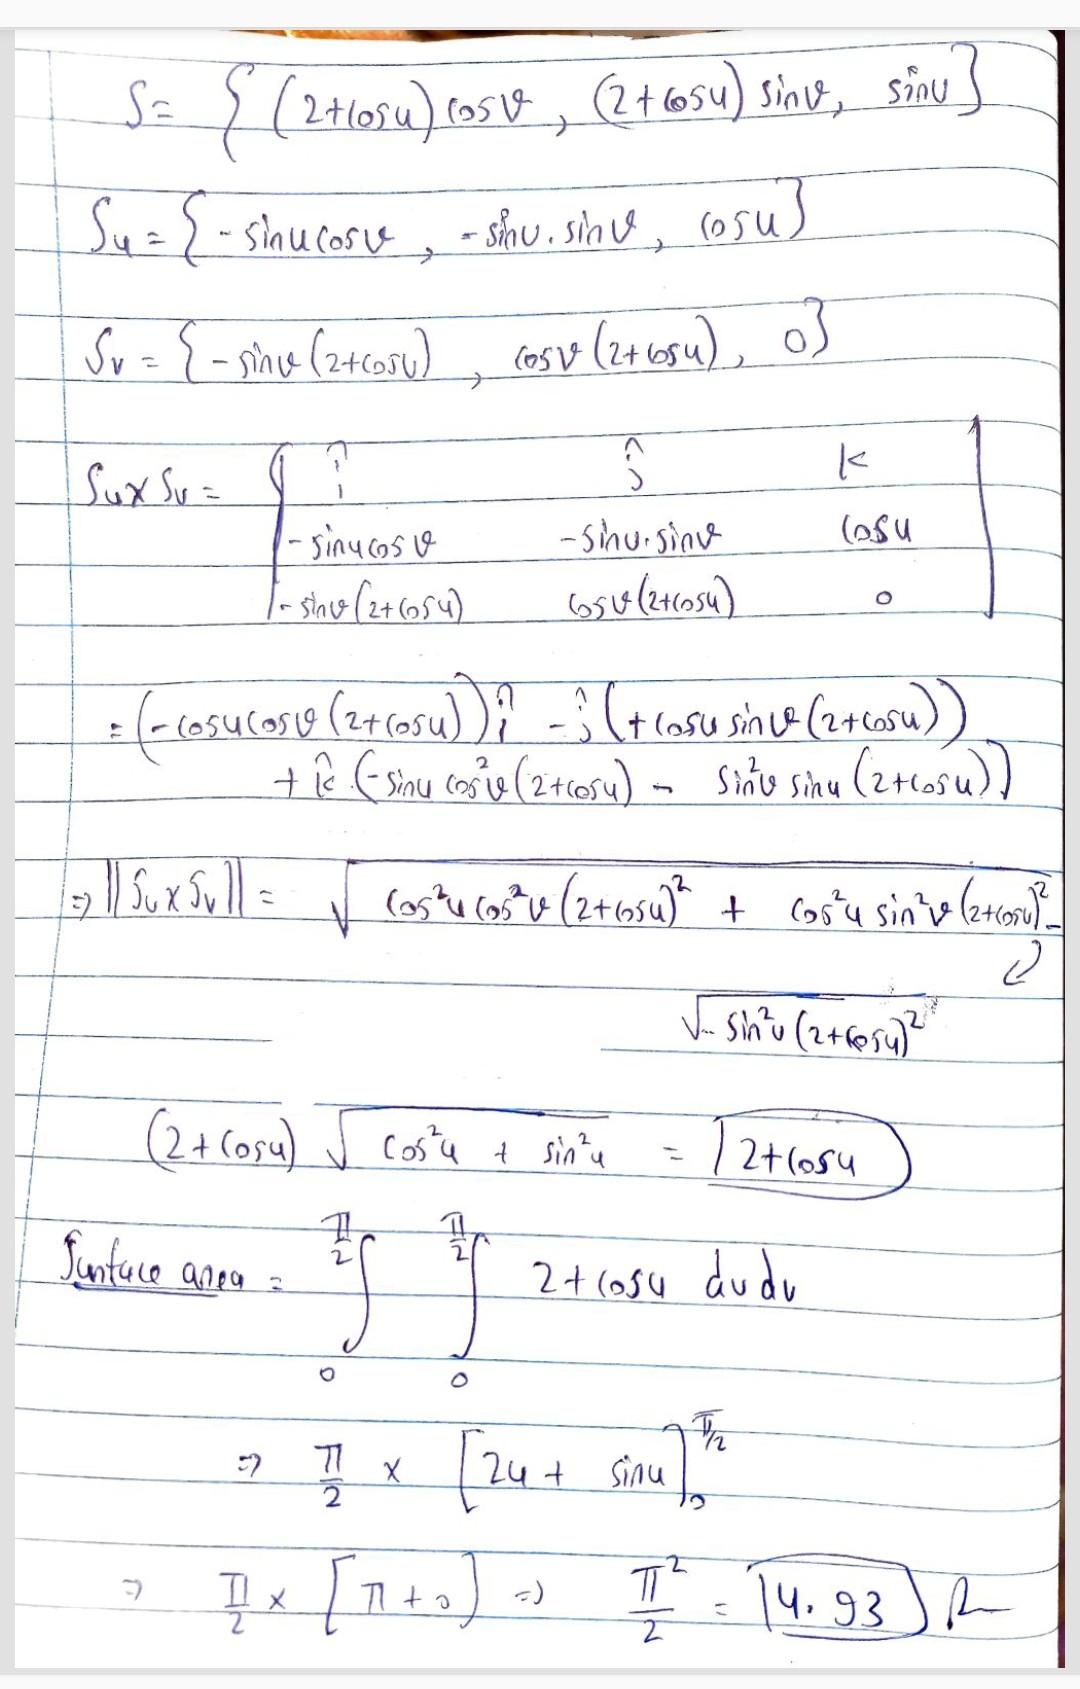 S = { (2+cosu) cosv , (2+cosu) sinv, sinu }
Su = { -sinu cosv , -sinu. sinv , cosu }
Sv = { -sinv (2+cosu) , cosv (2+cosu) , 0 }
Su x Sv = | î ĵ k
-sinu cosv -sinu. sinv cosu
-sinv (2+cosu) cosv (2+cosu) 0 |
= (-cosu cosv (2+cosu)) î - ĵ (+ cosu sinv (2+cosu))
+ k̂ (-sinu cos²v (2+cosu) - sin²v sinu (2+cosu))
⇒ || Su x Sv || = √ cos²u cos²v (2+cosu)² + cos²u sin²v (2+cosu)²
√-- sin²u (2+cosu)²
(2+cosu) √ cos²u + sin²u = 2+cosu
Surface area = ∫₀^{π/2} ∫₀^{π/2} 2+cosu du dv
⇒ π/2 x [ 2u + sinu ]₀^{π/2}
⇒ π/2 x [ π + 0 ] ⇒ π²/2 = 4.93